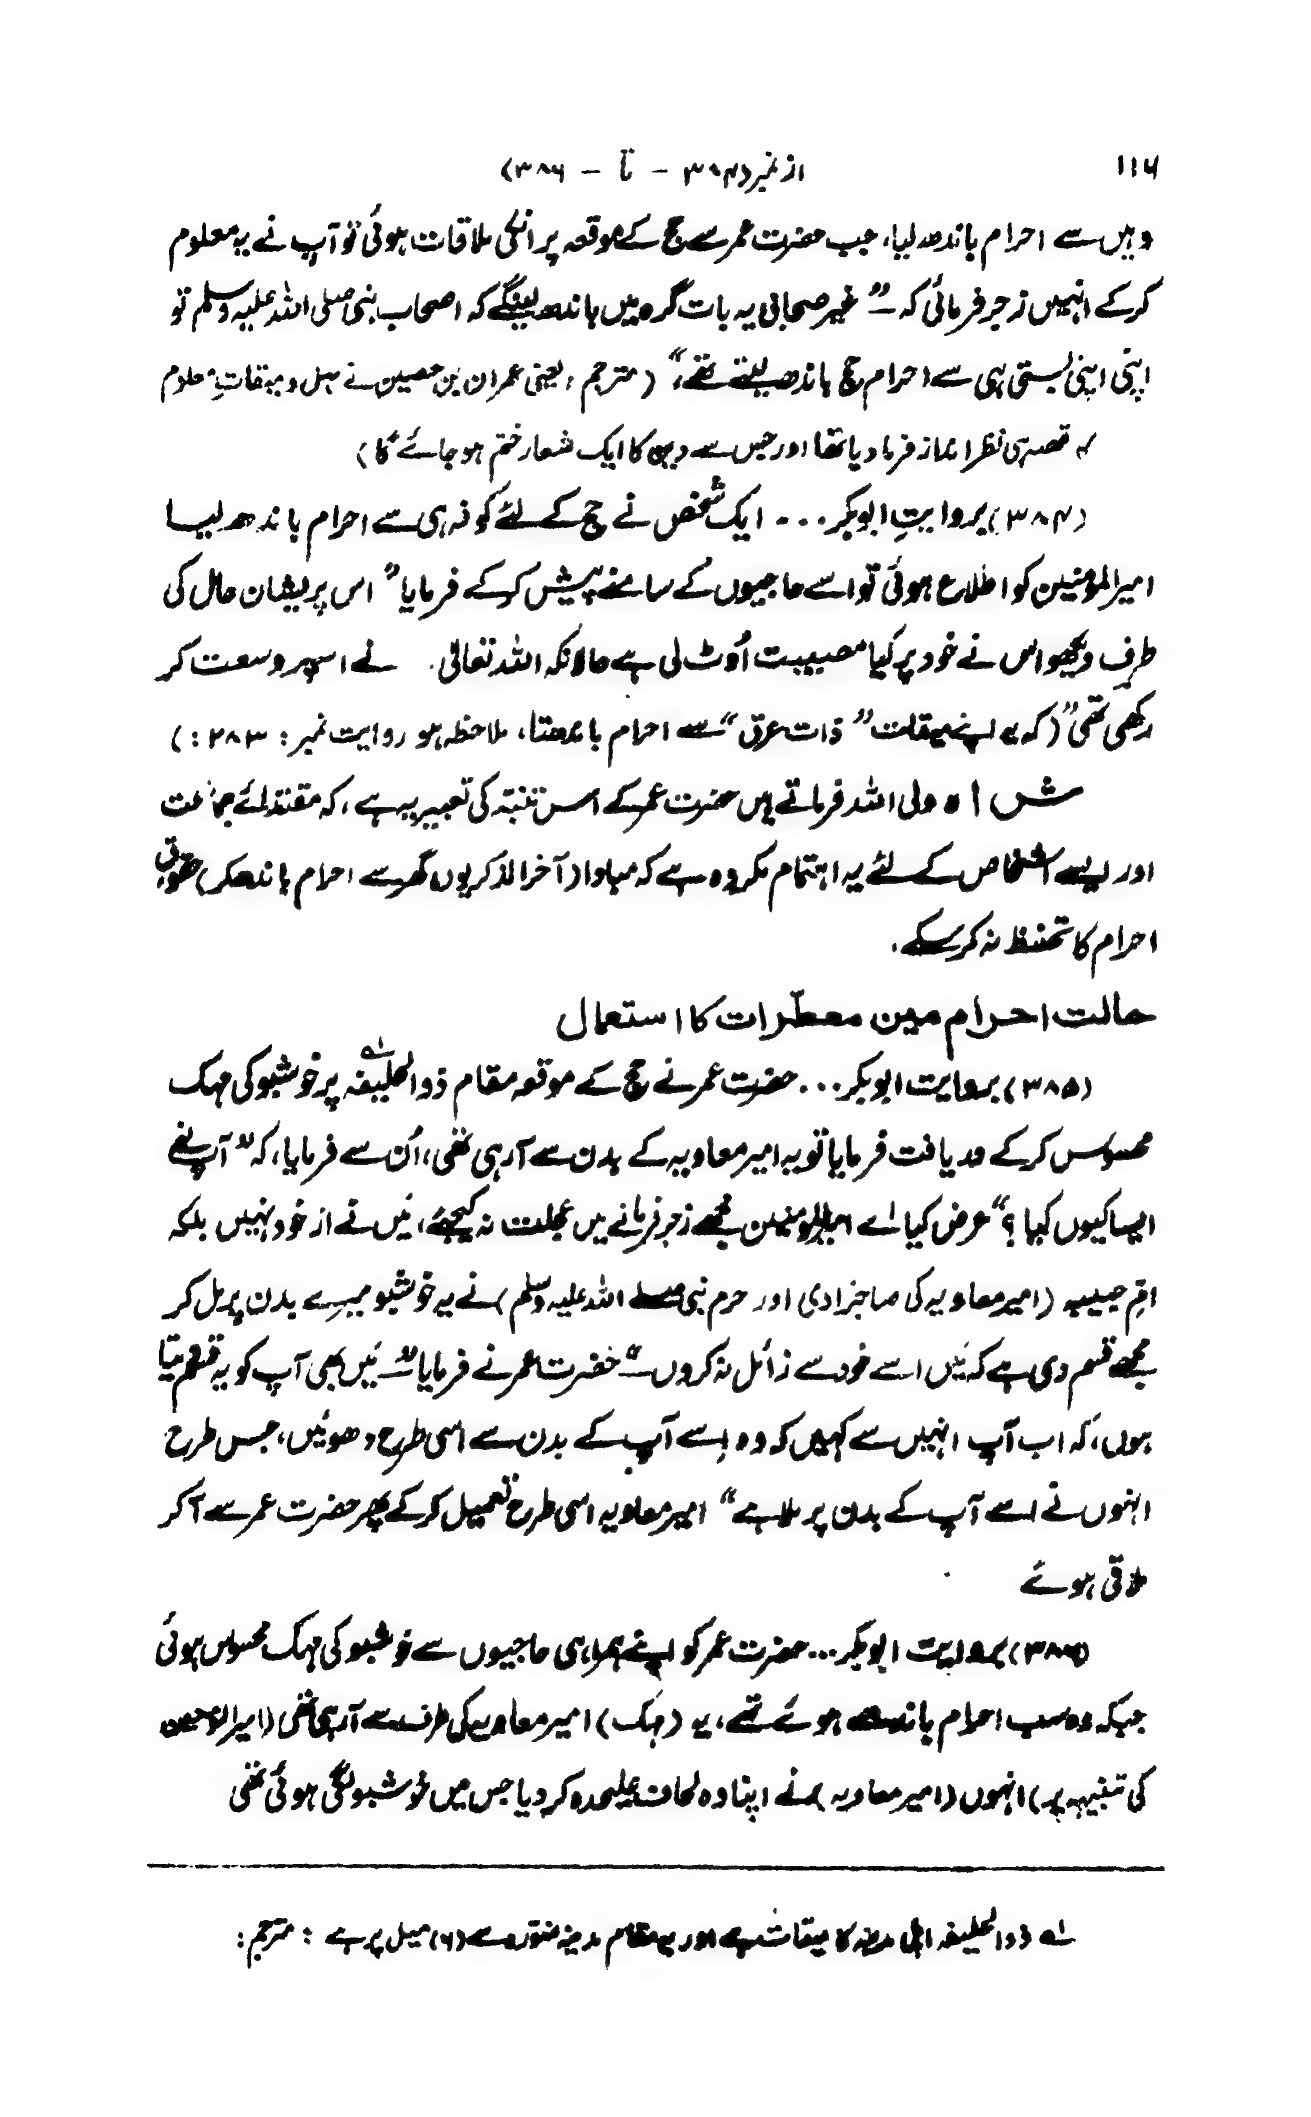 ۱۱۶
از نمبر (۳۸۴ - تا - ۳۸۶)
وہیں سے احرام باندھ لیا، جب حضرت عمر سے حج کے موقعہ پر انکی ملاقات ہوئی تو آپ نے یہ معلوم
کر کے انہیں زجر فرمائی کہ — ” غیر صحابی یہ بات گرہ میں باندھ لینگے کہ اصحاب نبی صلی اللہ علیہ وسلم تو
اپنی اپنی بستی ہی سے احرام حج باندھ لیتے تھے،“ (مترجم: یعنی عمران بن حصین نے سہل و میقاتِ معلوم
قصری نظر انداز فرما دیا تھا اور جس سے دین کا ایک شعار ختم ہو جائے گا)
(۳۸۴) بروایتِ ابوبکر ... ایک شخص نے حج کے لئے کوفہ ہی سے احرام باندھ لیا
امیر المؤمنین کو اطلاع ہوئی تو اسے حاجیوں کے سامنے پیش کر کے فرمایا ” اس پریشان حال کی
طرف دیکھو اس نے خود پر کیا مصیبت اوٹ لی ہے حالانکہ اللہ تعالیٰ نے اسپر وسعت کر
رکھی تھی“ (کہ یہ اپنے میقات ” ذات عرق “ سے احرام باندھتا، ملاحظہ ہو روایت نمبر: ۲۸۳:)
شاہ ولی اللہ فرماتے ہیں حضرت عمر کے اس تنبّہ کی تعبیر یہ ہے، کہ مقتدائے جماعت
اور ایسے اشخاص کے لئے یہ اہتمام مکروہ ہے کہ مبادا (آخر الذکر یوں گھر سے احرام باندھکر) حقوقِ
احرام کا تحفظ نہ کر سکے.
حالت احرام میں معطّرات کا استعمال
(۳۸۵) بروایت ابوبکر ... حضرت عمر نے حج کے موقعہ مقام ذوالحلیفہ لہ پر خوشبو کی مہک
محسوس کر کے دریافت فرمایا تو یہ امیر معاویہ کے بدن سے آ رہی تھی، اُن سے فرمایا، کہ ” آپ نے
ایسا کیوں کیا؟“ عرض کیا اے امیر المومنین مجھے زجر فرمانے میں عجلت نہ کیجئے، مَیں نے از خود نہیں بلکہ
امِّ حبیبہ (امیر معاویہ کی صاحبزادی اور حرم نبی صلے اللہ علیہ وسلم) نے یہ خوشبو میرے بدن پر مل کر
مجھے قسم دی ہے کہ مَیں اسے خود سے زائل نہ کروں —“ حضرت عمر نے فرمایا —” مَیں بھی آپ کو یہ قسم دیتا
ہوں، کہ اب آپ انہیں سے کہیں کہ وہ اِسے آپ کے بدن سے اسی طرح دھوئیں، جس طرح
انہوں نے اسے آپ کے بدن پر ملا ہے“ امیر معاویہ اسی طرح تعمیل کر کے پھر حضرت عمر سے آ کر
ملاقی ہوئے
(۳۸۶) بروایت ابوبکر ... حضرت عمر کو اپنے ہمراہی حاجیوں سے خوشبو کی مہک محسوس ہوئی
جبکہ وہ سب احرام باندھے ہوئے تھے، یہ (مہک) امیر معاویہ کی طرف سے آ رہی تھی (امیر المومنین
کی تنبیہہ پر) انہوں (امیر معاویہ) نے اپنا وہ لحاف علیحدہ کر دیا جس میں خوشبو لگی ہوئی تھی
لہ ذوالحلیفہ اہلِ مدینہ کا میقات ہے اور یہ مقام مدینہ منورہ سے (۶) میل پر ہے : مترجم: